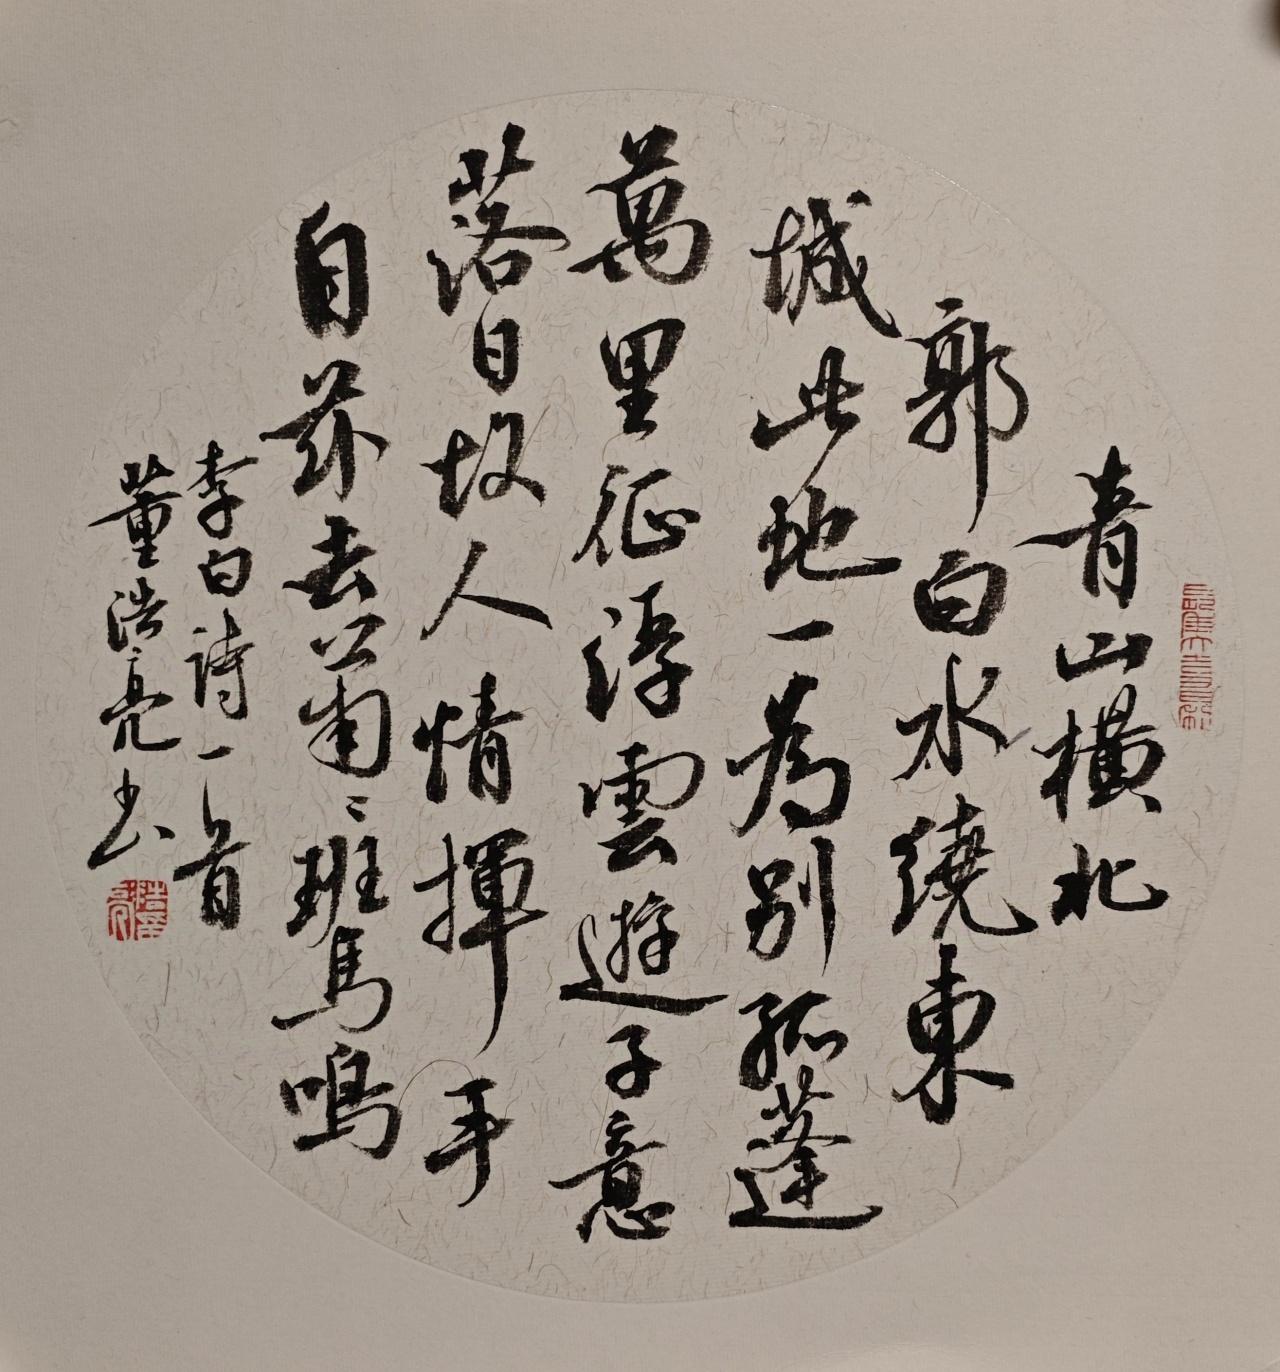 青山橫北
郭白水繞東
城此地一為別孤蓬
萬里征浮雲遊子意
落日故人情揮手
自茲去蕭〻班馬鳴
李白詩一首
董浩亮书